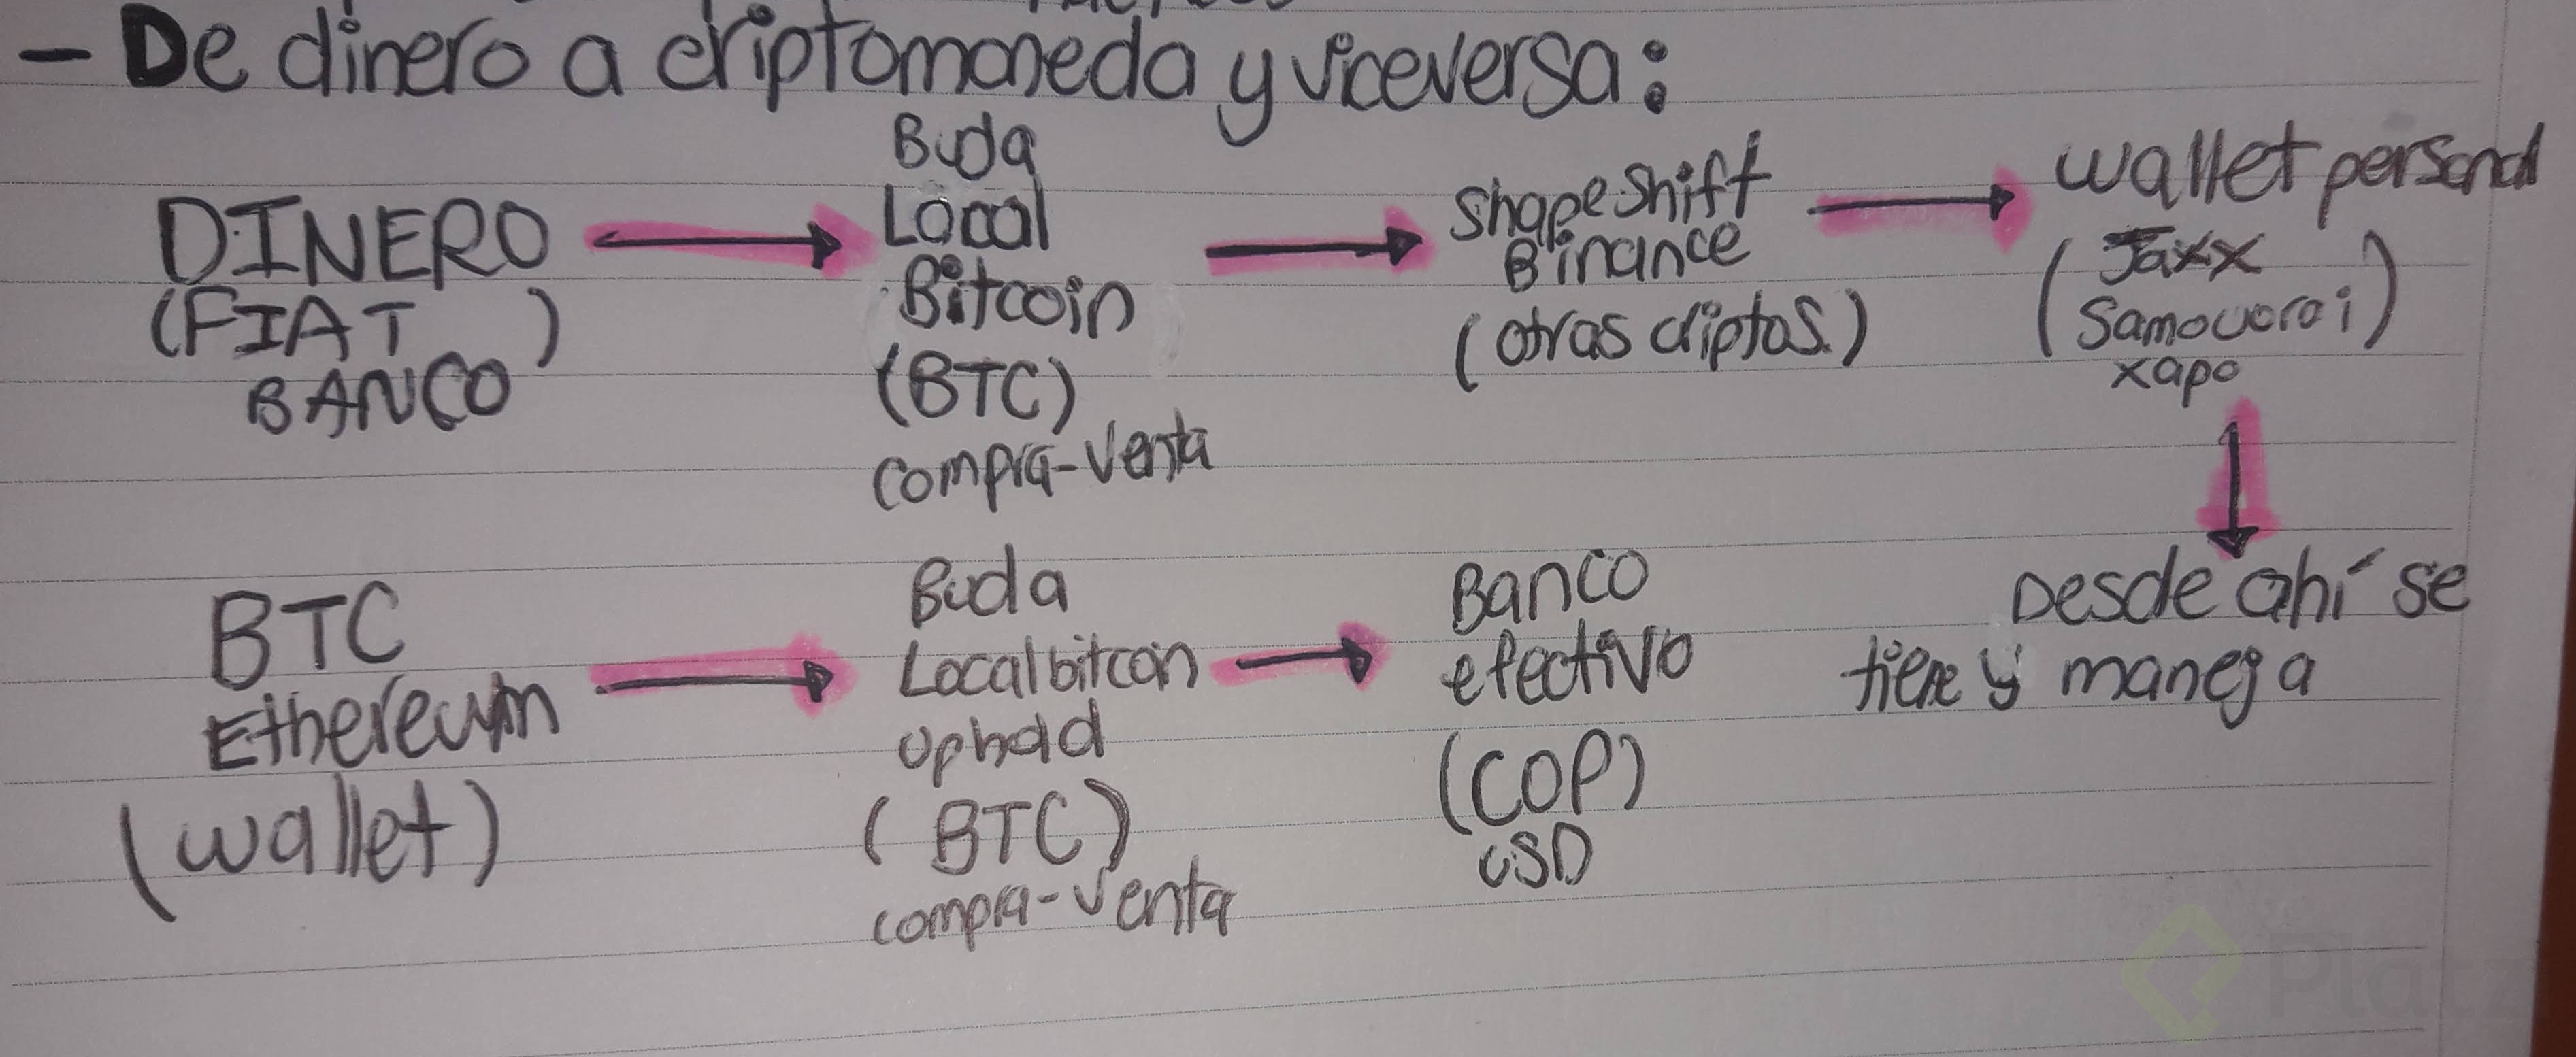 - De dinero a criptomoneda y viceversa:
DINERO
(FIAT
BANCO)
Buda
Local
Bitcoin
(BTC)
compra-venta
ShapeShift
Binance
(otras criptos.)
wallet personal
(Jaxx
Samouorai)
xapo
Desde ahí se
tiene y maneja
BTC
Ethereum
(wallet)
Buda
Localbitcoin
Uphold
(BTC)
compra-venta
Banco
efectivo
(COP)
USD
Platz